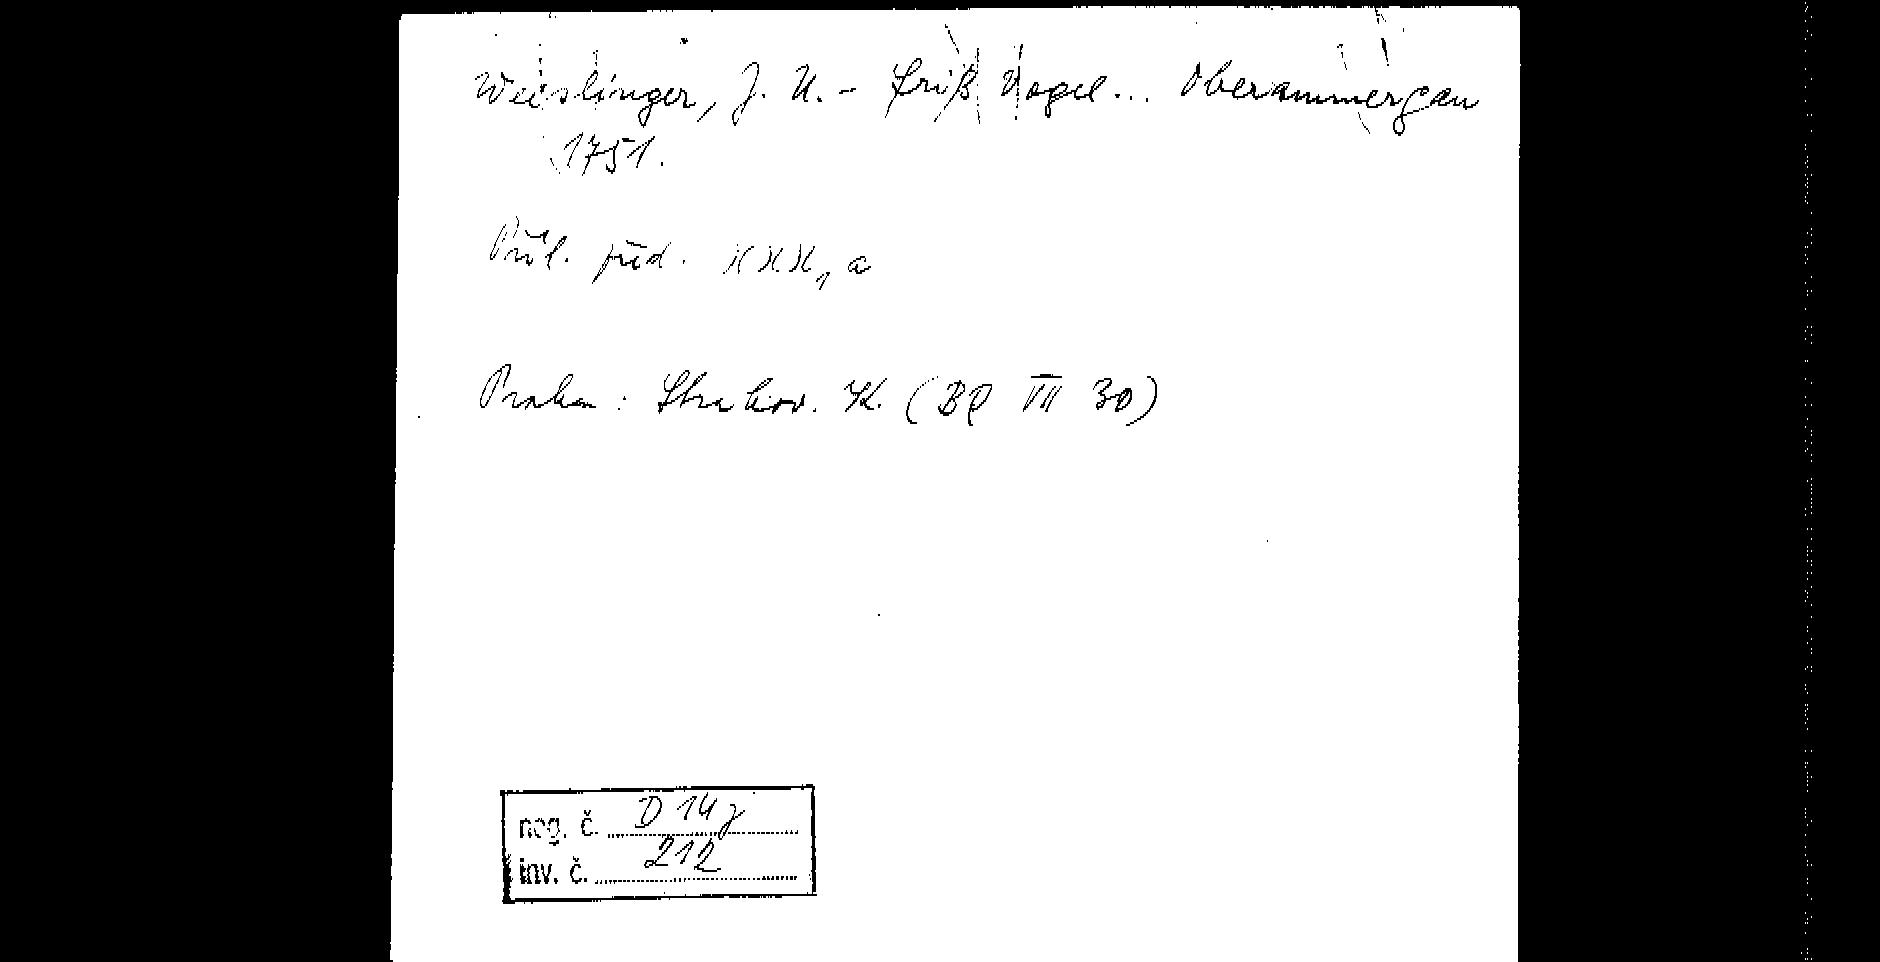 Weislinger, J. N. - Friß Vogel... Oberammergau
1751.
Příl. pův. XXX, a
Praha: Strahov. K. (BQ VII 30)
neg. č. D 14 j
inv. č. 212